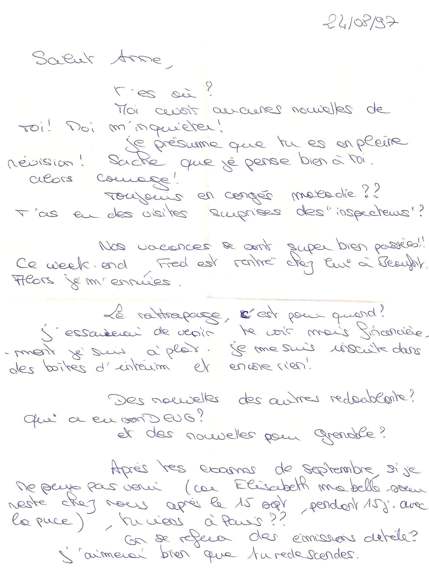 24/08/97
Salut Anne,
T'es où ?
Moi avoir aucunes nouvelles de
toi! Moi m'inquiéter!
je présume que tu es en pleine
révision! Sache que je pense bien à toi.
alors courage!
Toujours en congés maladie ??
T'as eu des visites surprises des "inspecteurs"?
Nos vacances se sont super bien passées!!
Ce week-end Fred est rentré chez lui à
Alors je m'ennuies.
Le rattrapage, c'est pour quand?
j'essaierai de venir te voir mais financière-
-ment je suis à plat. je me suis inscrite dans
des boîtes d'intérim et encore rien!
Des nouvelles des autres redoublants?
Qui a eu son DEUG?
et des nouvelles pour Grenoble?
Après tes examens de septembre, si je
ne peux pas venir (car Elisabeth ma belle-soeur
reste chez nous après le 15 sept, pendant 15 j. avec
la puce), tu viens à Paris ??
On se refera des émissions de télé?
j'aimerai bien que tu redescendes.